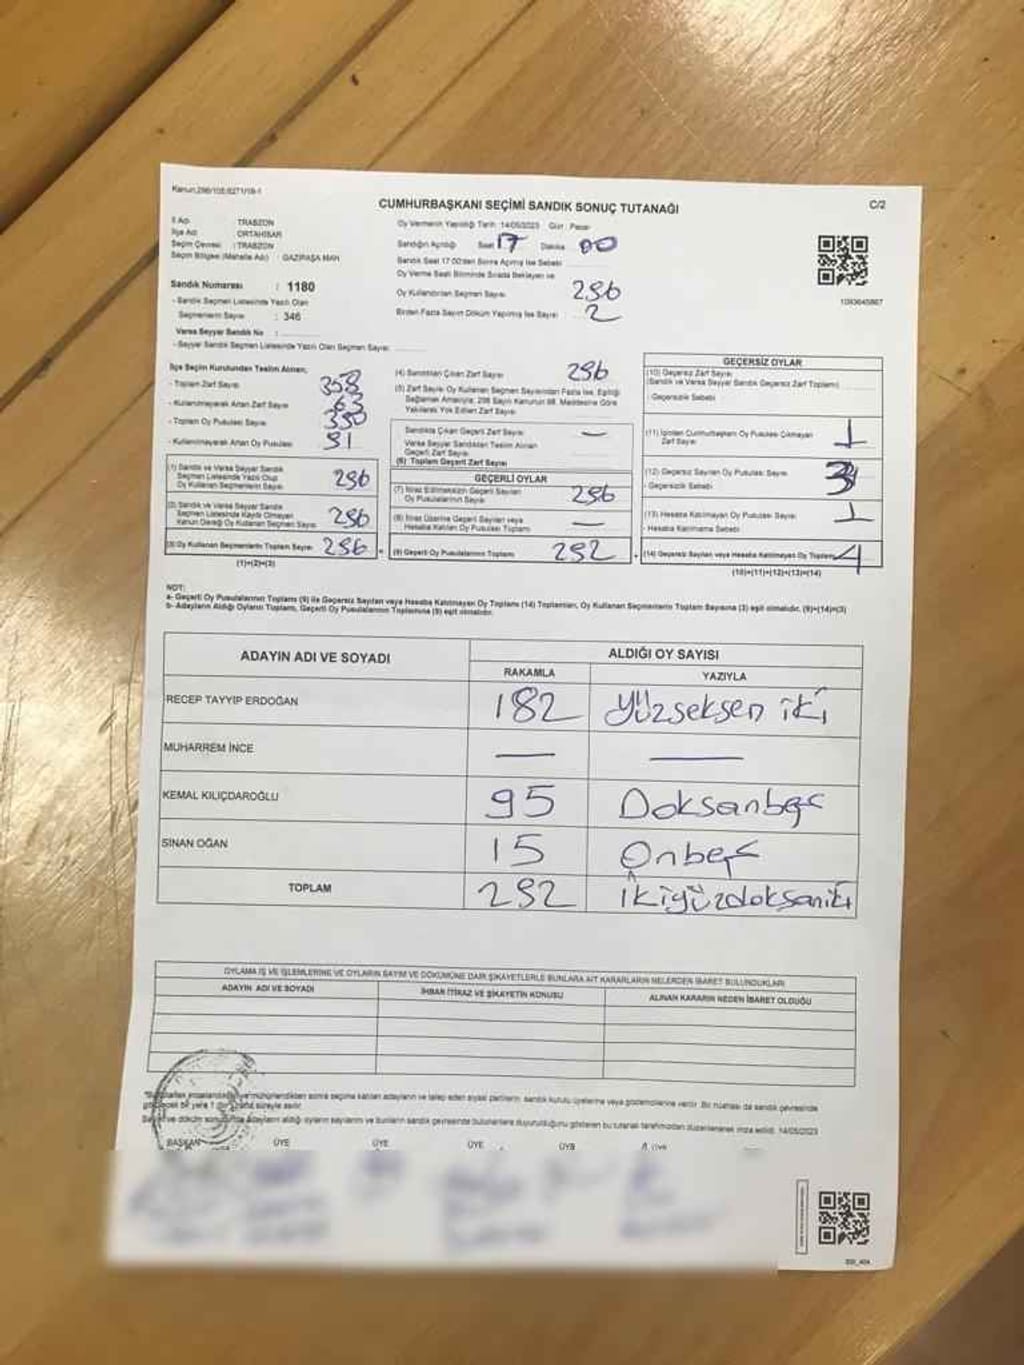 Kanun:298/10E/6271/19-1
CUMHURBAŞKANI SEÇİMİ SANDIK SONUÇ TUTANAĞI
C/2
İl Adı : TRABZON
İlçe Adı : ORTAHİSAR
Seçim Çevresi : TRABZON
Seçim Bölgesi (Mahalle Adı) : GAZİPAŞA MAH
Oy Vermenin Yapıldığı Tarih: 14/05/2023 Gün: Pazar
Sandığın Açıldığı Saat 17 Dakika 00
Sandık Saat 17:00'den Sonra Açılmış İse Sebebi
Oy Verme Saati Bitiminde Sırada Bekleyen ve
Oy Kullandırılan Seçmen Sayısı 296
Birden Fazla Sayım Döküm Yapılmış İse Sayısı 2
Sandık Numarası : 1180
- Sandık Seçmen Listesinde Yazılı Olan
Seçmenlerin Sayısı : 346
Varsa Seyyar Sandık No :
- Seyyar Sandık Seçmen Listesinde Yazılı Olan Seçmen Sayısı
İlçe Seçim Kurulundan Teslim Alınan;
- Toplam Zarf Sayısı 358
- Kullanılmayarak Artan Zarf Sayısı 63
- Toplam Oy Pusulası Sayısı
- Kullanılmayarak Artan Oy Pusulası 91
(1) Sandık ve Varsa Seyyar Sandık
Seçmen Listesinde Yazılı Olup
Oy Kullanan Seçmenlerin Sayısı 296
(2) Sandık ve Varsa Seyyar Sandık
Seçmen Listesinde Kayıtlı Olmayan
Kanun Gereği Oy Kullanan Seçmen Sayısı 296
(3) Oy Kullanan Seçmenlerin Toplam Sayısı 296
(1)+(2)=(3)
(4) Sandıktan Çıkan Zarf Sayısı 296
(5) Zarf Sayısı Oy Kullanan Seçmen Sayısından Fazla İse, Eşitliği
Sağlamak Amacıyla; 298 Sayılı Kanunun 98. Maddesine Göre
Yakılarak Yok Edilen Zarf Sayısı
Sandıkta Çıkan Geçerli Zarf Sayısı —
Varsa Seyyar Sandıktan Teslim Alınan
Geçerli Zarf Sayısı
(6) Toplam Geçerli Zarf Sayısı
GEÇERLİ OYLAR
(7) İtiraz Edilmeksizin Geçerli Sayılan
Oy Pusulalarının Sayısı 296
(8) İtiraz Üzerine Geçerli Sayılan veya
Hesaba Katılan Oy Pusulası Toplamı —
(9) Geçerli Oy Pusulalarının Toplamı 292
GEÇERSİZ OYLAR
(10) Geçersiz Zarf Sayısı
(Sandık ve Varsa Seyyar Sandık Geçersiz Zarf Toplamı)
- Geçersizlik Sebebi
(11) İçinden Cumhurbaşkanı Oy Pusulası Çıkmayan
Zarf Sayısı 1
(12) Geçersiz Sayılan Oy Pusulası Sayısı
- Geçersizlik Sebebi
(13) Hesaba Katılmayan Oy Pusulası Sayısı 1
- Hesaba Katılmama Sebebi
(14) Geçersiz Sayılan veya Hesaba Katılmayan Oy Toplamı 4
(10)+(11)+(12)+(13)=(14)
NOT:
a- Geçerli Oy Pusulalarının Toplamı (9) ile Geçersiz Sayılan veya Hesaba Katılmayan Oy Toplamı (14) Toplamları, Oy Kullanan Seçmenlerin Toplam Sayısına (3) eşit olmalıdır. (9)+(14)=(3)
b- Adayların Aldığı Oyların Toplamı, Geçerli Oy Pusulalarının Toplamına (9) eşit olmalıdır.
ADAYIN ADI VE SOYADI
ALDIĞI OY SAYISI
RAKAMLA YAZIYLA
RECEP TAYYİP ERDOĞAN 182 Yüzseksen iki
MUHARREM İNCE — —
KEMAL KILIÇDAROĞLU 95 Doksanbeş
SİNAN OĞAN 15 Onbeş
TOPLAM 292 ikiyüzdoksaniki
OYLAMA İŞ VE İŞLEMLERİNE VE OYLARIN SAYIM VE DÖKÜMÜNE DAİR ŞİKAYETLERLE BUNLARA AİT KARARLARIN NELERDEN İBARET BULUNDUKLARI
ADAYIN ADI VE SOYADI İHBAR İTİRAZ VE ŞİKAYETİN KONUSU ALINAN KARARIN NEDEN İBARET OLDUĞU
BAŞKAN ÜYE ÜYE ÜYE ÜYE ÜYE